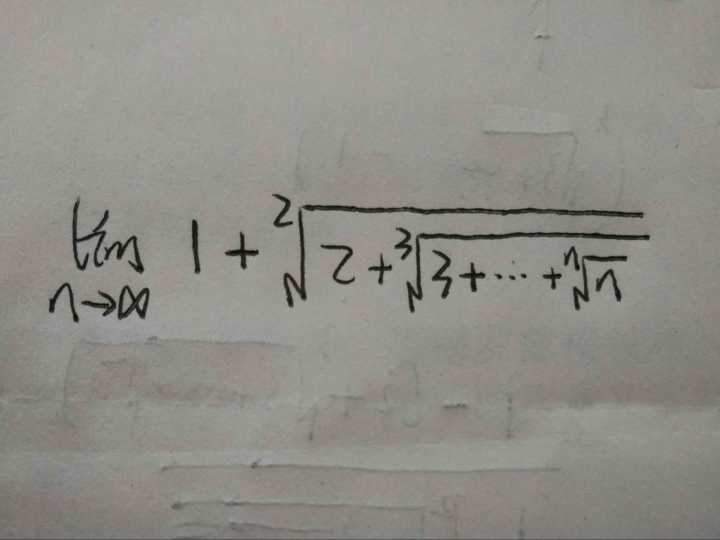 lim n→∞ 1 + ²√(2 + ³√(3 + ··· + ⁿ√n))